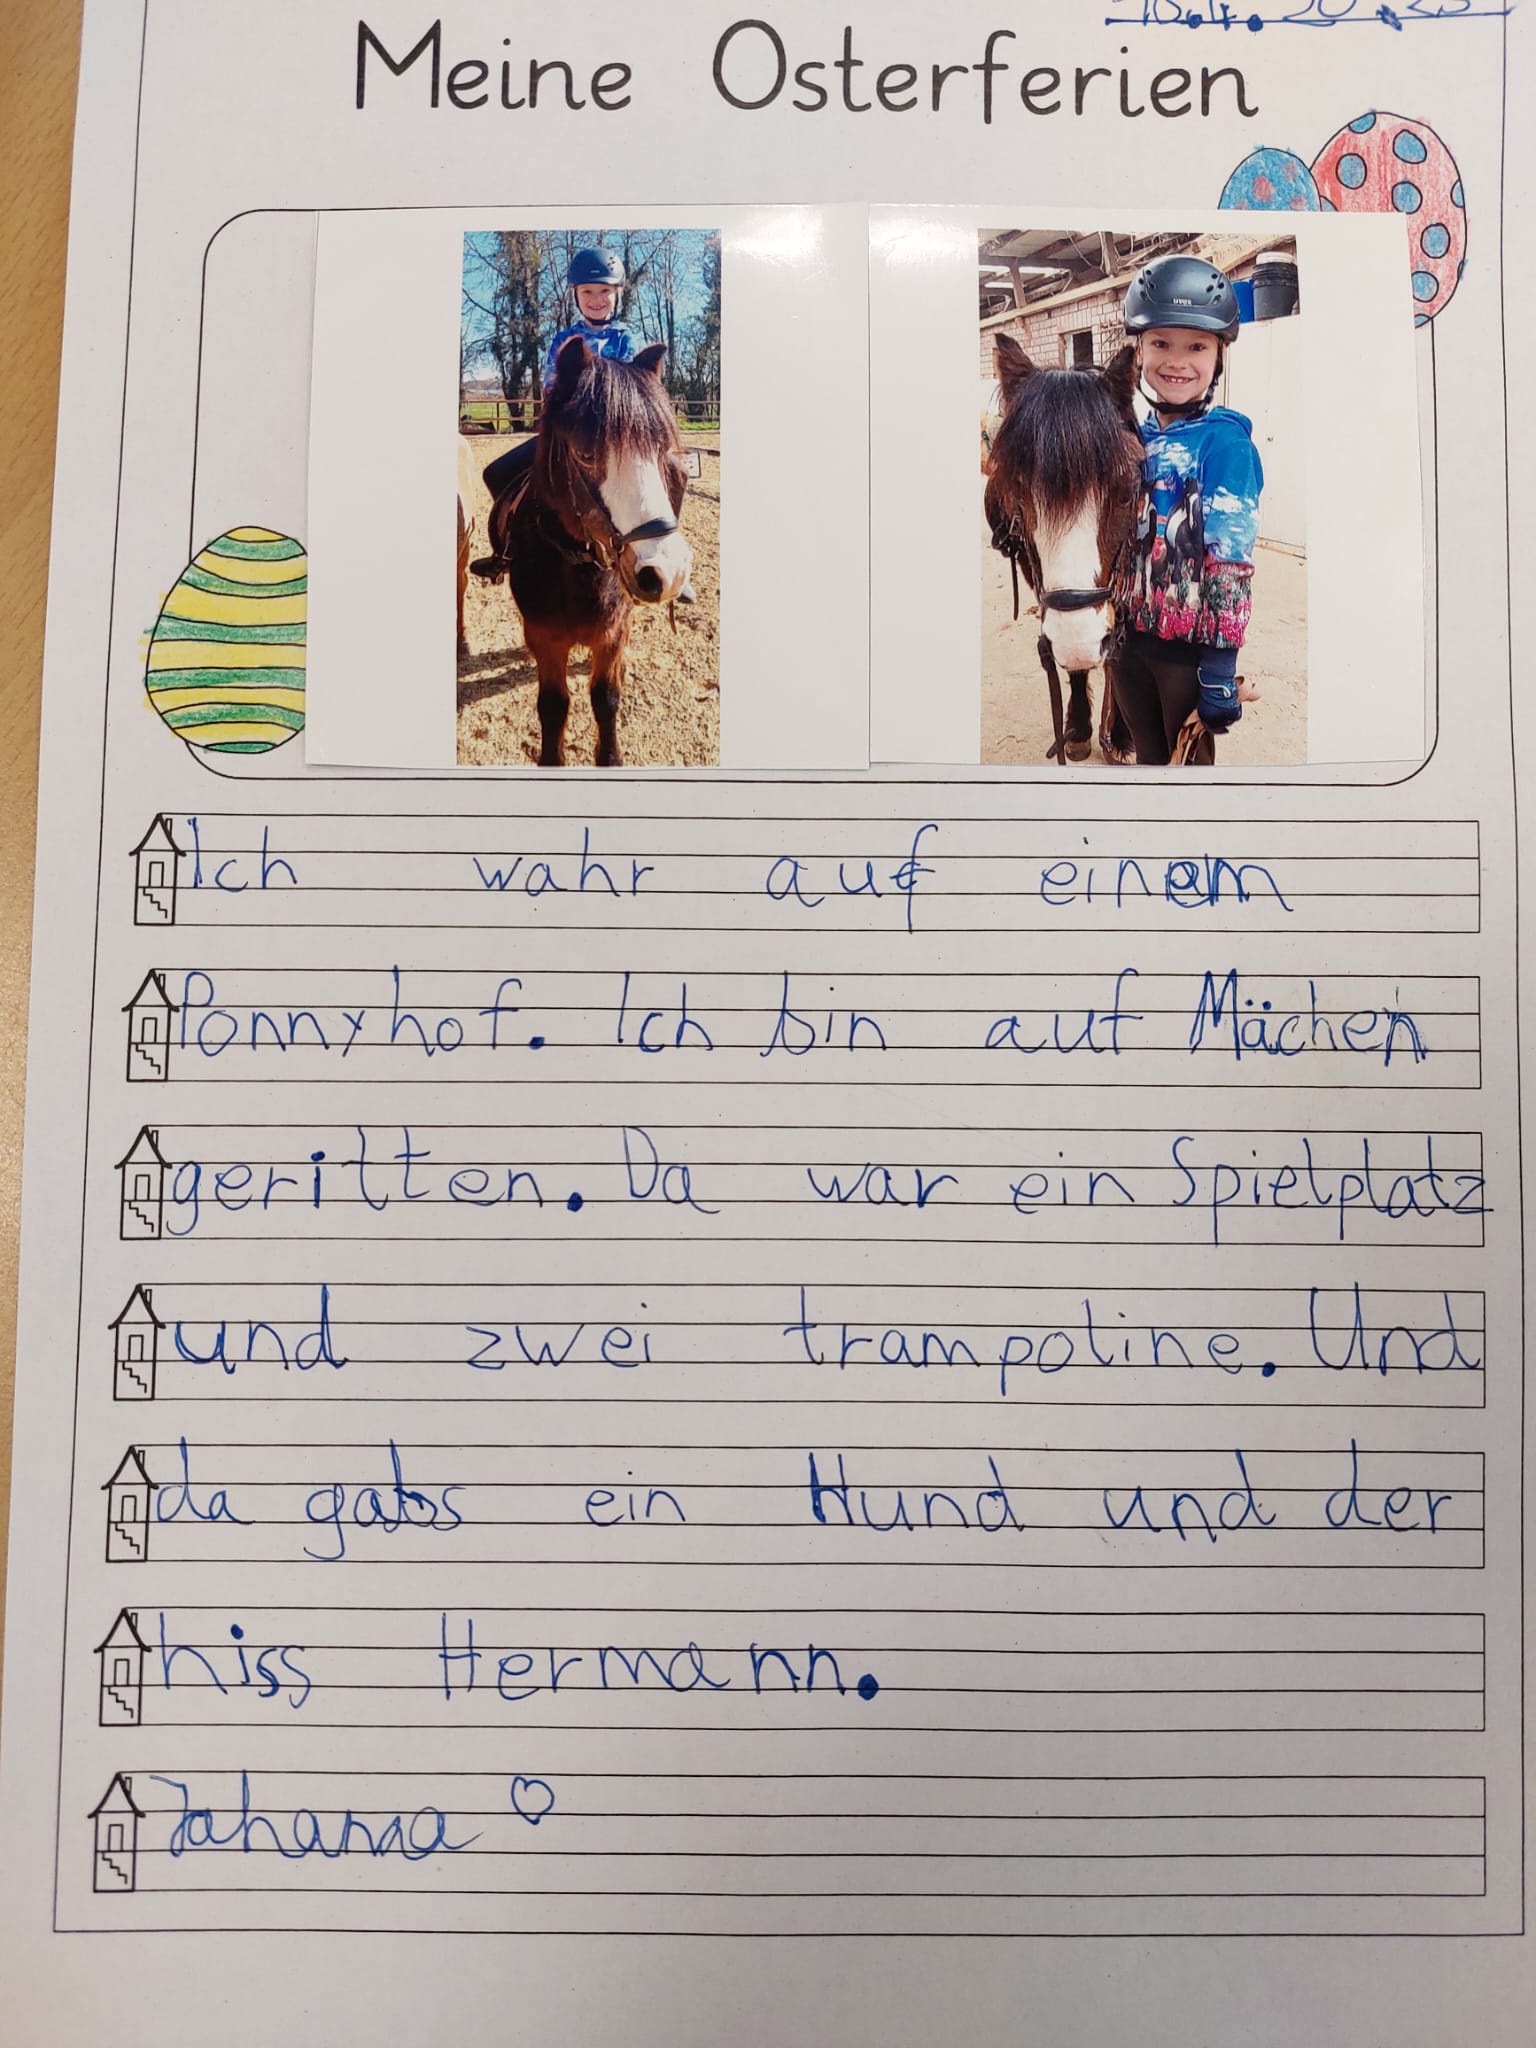 Meine Osterferien
uvex
Ich wahr auf einem
Ponnyhof. Ich bin auf Mächen
geritten. Da war ein Spielplatz
und zwei trampoline. Und
da gabs ein Hund und der
hiss Hermann.